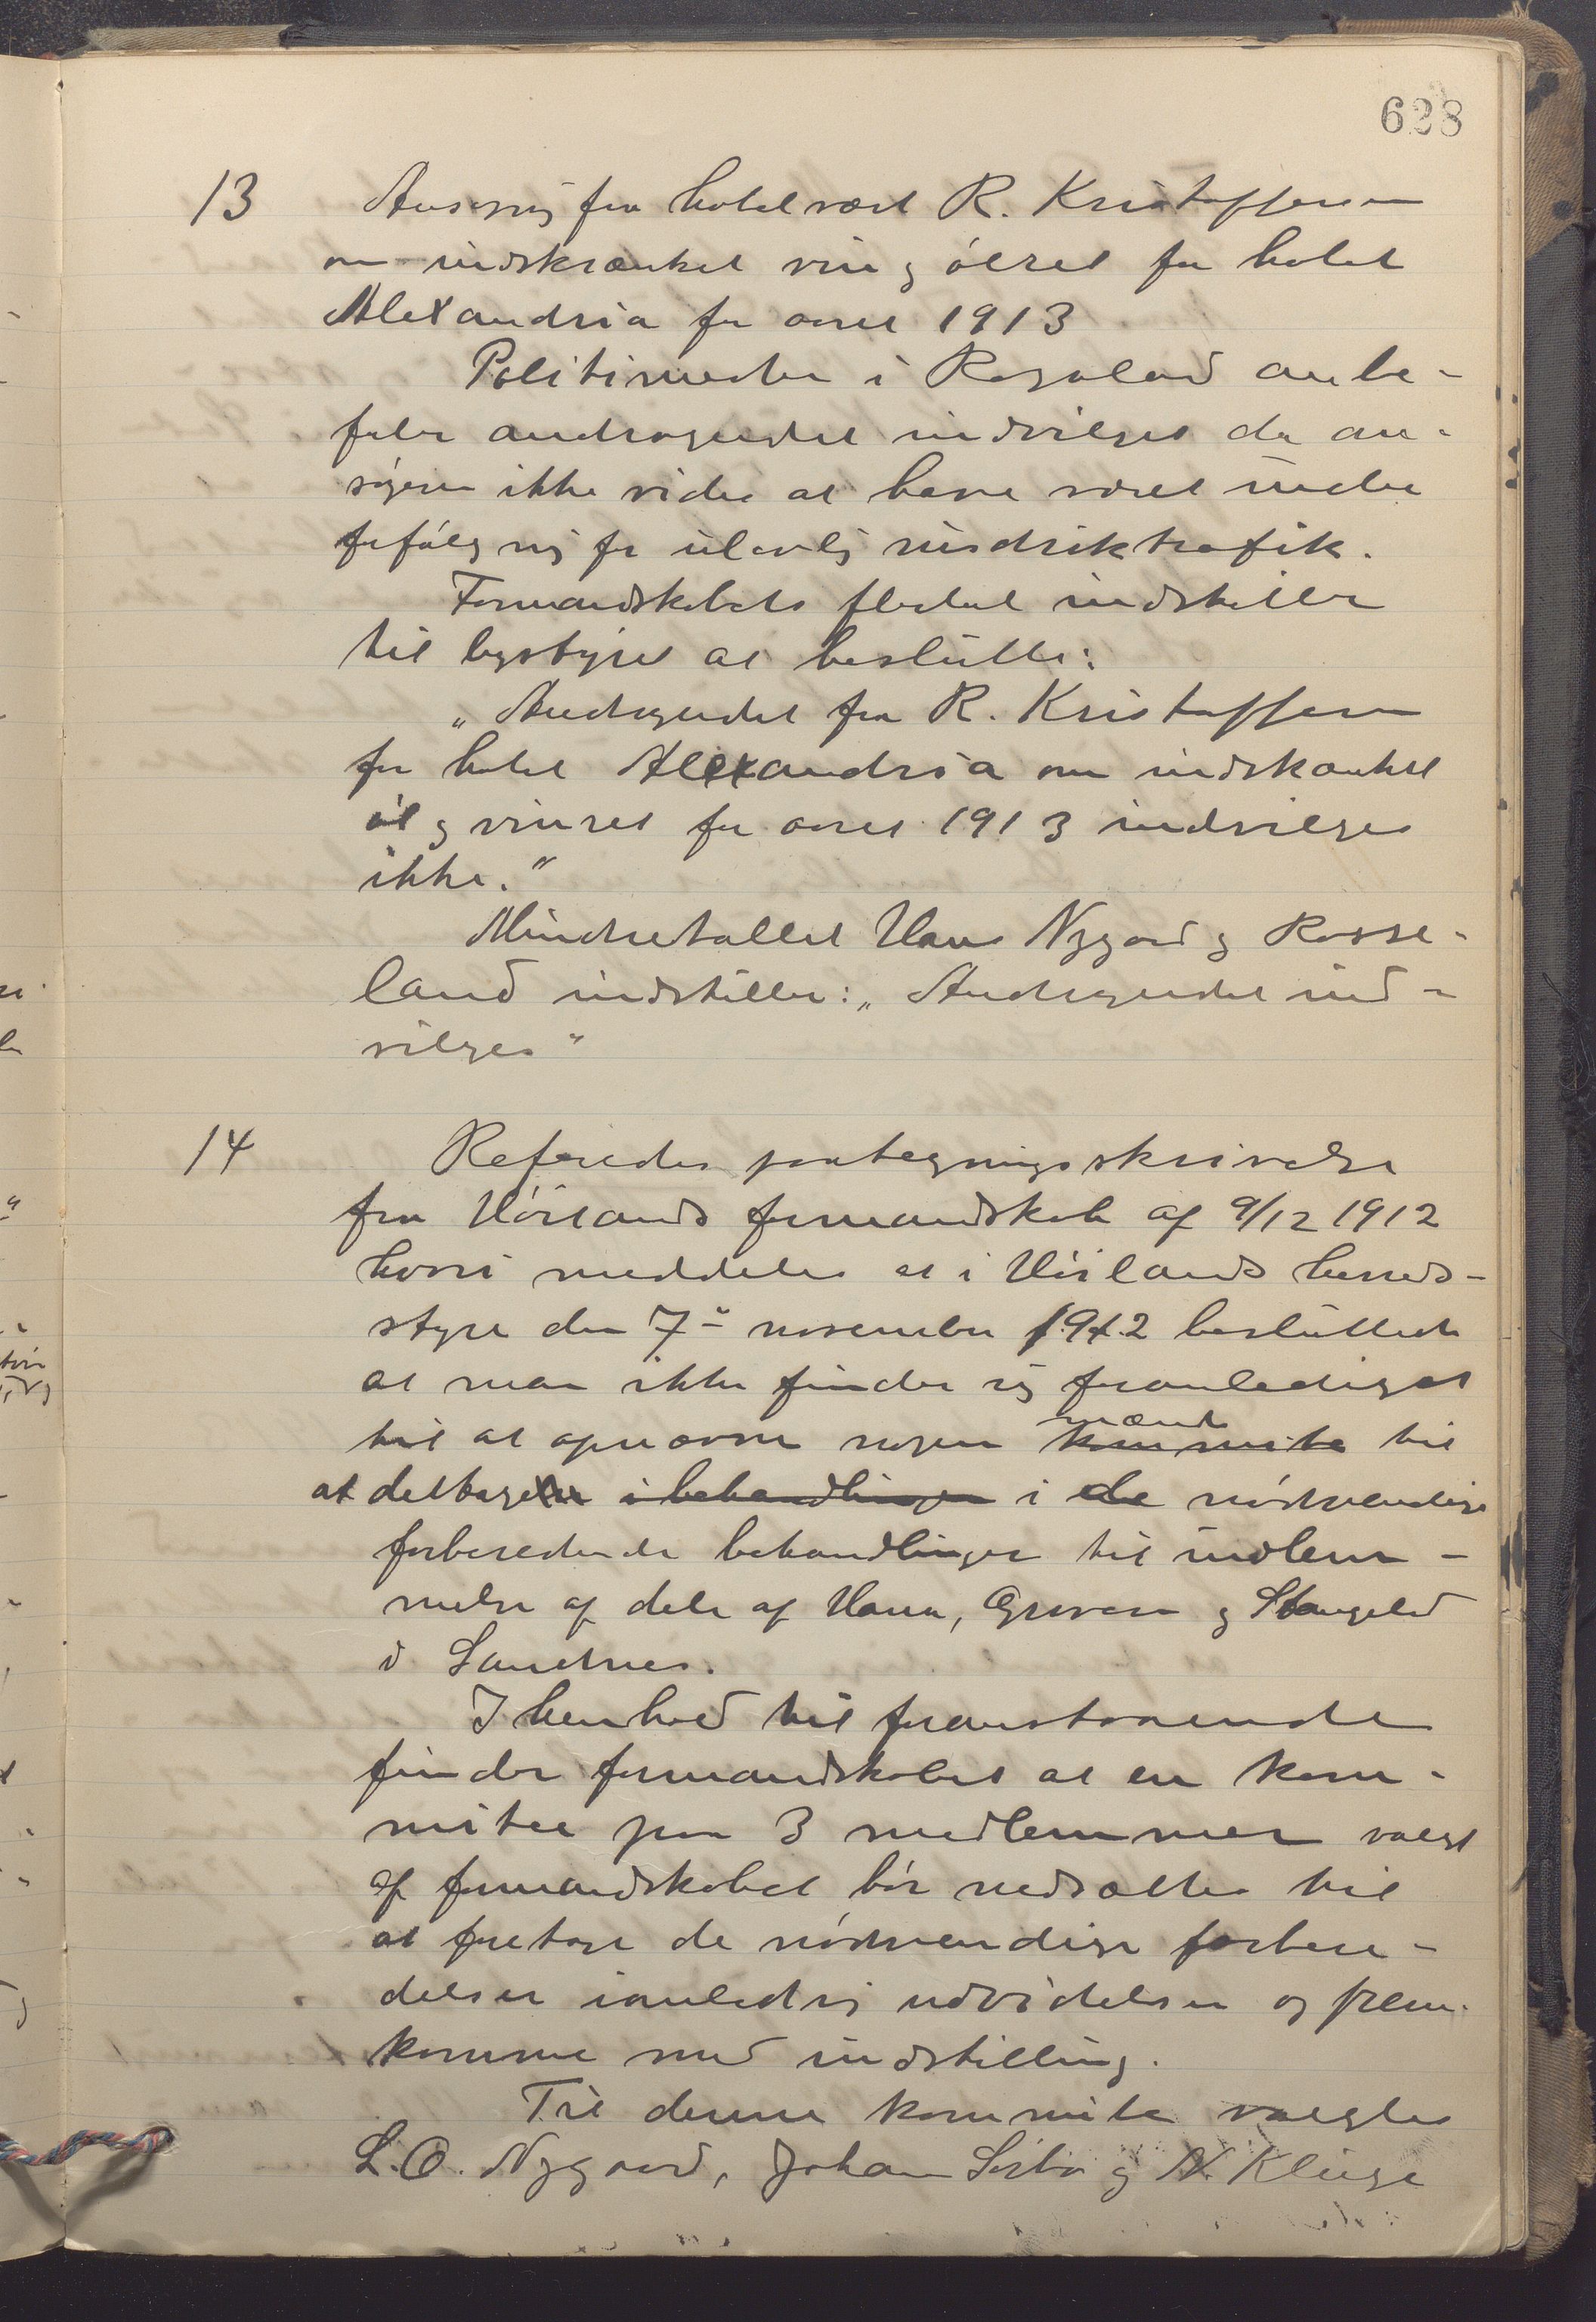 628
13 Ansøgning fra hotelvært R. Kristoffersen
om indskrænket vin og ølret for hotel
Alexandria for aaret 1913
Politimester i Rogaland anbe-
faler andragendet indvilget da an-
søgeren ikke vides at have været under
forfølgning for ulovlig rusdriktrafik.
Formandskabets flertal indstiller
til bystyret at beslutte:
„Andragendet fra R. Kristoffersen
for hotel Alexandria om indskrænket
øl og vinret for aaret 1913 indvilges
ikke."
Mindretallet Hans Nygaard og Rosse-
land indstiller: „Andragendet ind-
vilges"
14 Refereredes paategningsskrivelse
fra Høilands formandskab af 9/12 1912
hvori meddeles at i Høilands herreds-
styre den 7de november 1912 besluttedes
at man ikke finder sig foranlediget
til at opnævne nogen kommite mænd til
at deltage i behandlingen i de nødvendige
forberedende behandlinger til indlem-
melse af dele af Hana, Gravaren og Stangeland
i Sandnes.
I henhold til foranstaaende
finder formandskabet at en kom-
mitee paa 3 medlemmer valgt
af formandskabet bør nedsættes til
at foretage de nødvendige forbere-
delser i anledning udvidelsen og frem-
komme med indstilling.
Til denne kommite valgtes
L.O. Nygaard, Johan Sørbø og N. Kluge